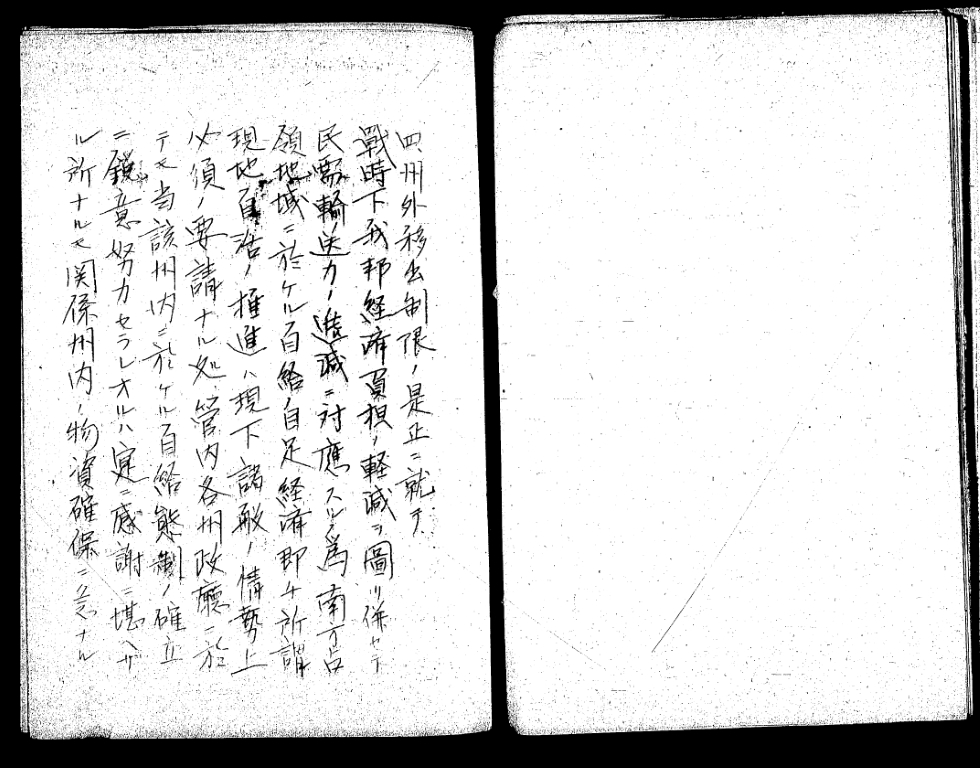 四州外移出制限ノ是正ニ就テ
戰時下我邦経済負担ノ軽減ヲ圖リ併セテ
民需輸送力ノ減ニ対應スル為南方占
領地域ニ於ケル自給自足経済即チ所謂
現地自活ノ推進ハ現下諸般ノ情勢上
必須ノ要請ナル処管内各州政廳ニ於
テモ当該州内ニ於ケル自給態制ノ確立
ニ鋭意努力セラレオルハ寔ニ感謝ニ堪ヘザ
ル所ナルモ関係州内ノ物資確保ニ急ナル